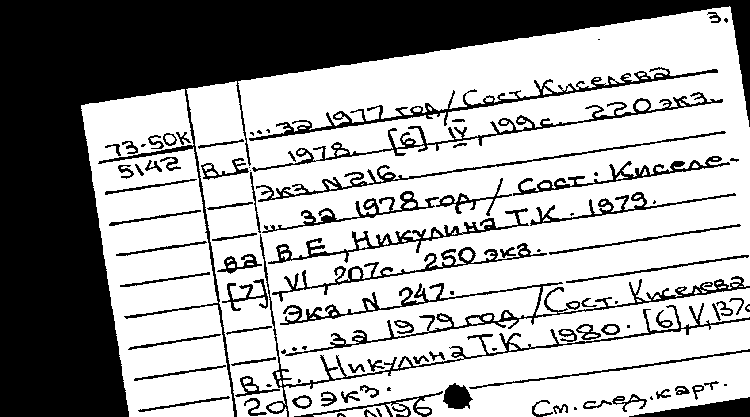 3.
73-50К ... за 1977 год / Сост. Киселева
5142 В.Е. 1978. [6], IV, 199 с. 220 экз.
Экз. N 216.
... за 1978 год / Сост: Киселе-
ва В.Е., Никулина Т.К. 1979.
[7], VI, 207с. 250 экз.
Экз. N 247.
... за 1979 год. / Сост. Киселева
В.Е., Никулина Т.К. 1980. [6], V, 137с
200 экз.
N196 См. след. карт.